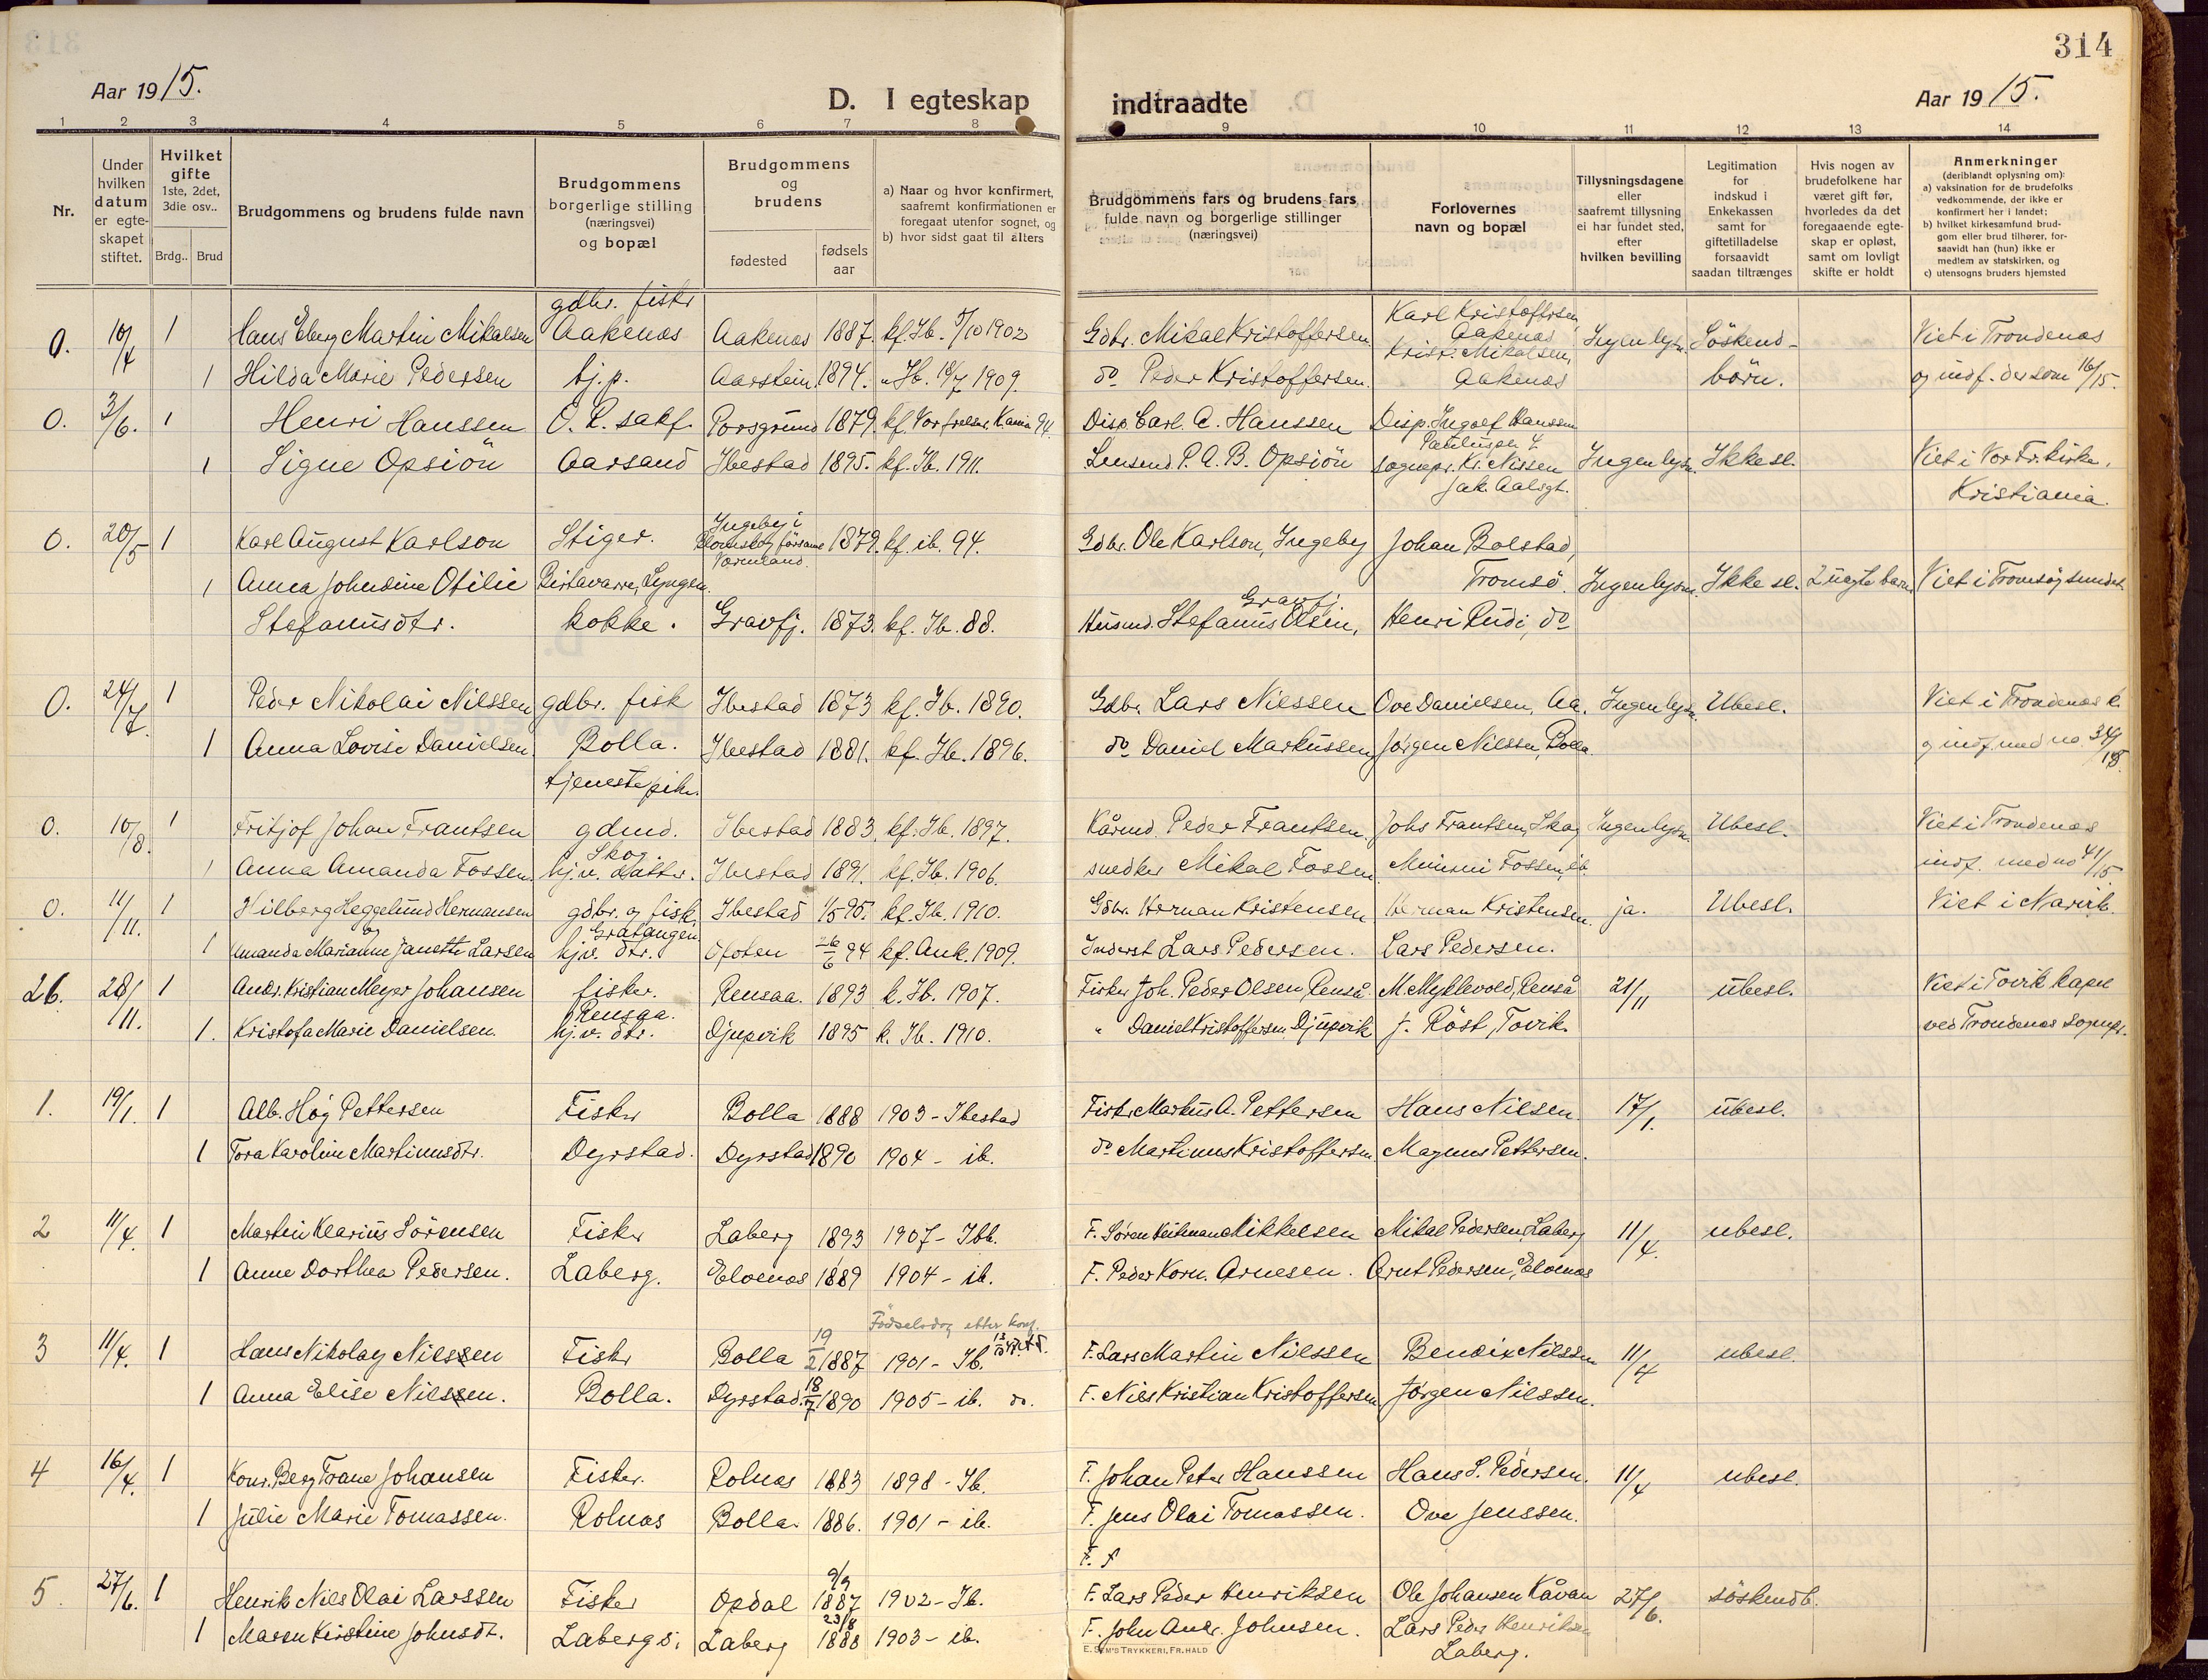 314
Aar 1915.
D. I egteskap
indtraadte
Aar 1915.
1 2 3 4 5 6 7 8 9 10 11 12 13 14
Nr.
Under hvilken datum er egteskapet stiftet.
Hvilket gifte 1ste, 2det, 3die osv..
Brdg.. Brud
Brudgommens og brudens fulde navn
Brudgommens borgerlige stilling (næringsvei) og bopæl
Brudgommens og brudens
fødested
fødsels aar
a) Naar og hvor konfirmert, saafremt konfirmationen er foregaat utenfor sognet, og
b) hvor sidst gaat til alters
Brudgommens fars og brudens fars fulde navn og borgerlige stillinger (næringsvei)
Forlovernes navn og bopæl
Tillysningsdagene eller saafremt tillysning ei har fundet sted, efter hvilken bevilling
Legitimation for indskud i Enkekassen samt for giftetilladelse forsaavidt saadan tiltrænges
Hvis nogen av brudefolkene har været gift før, hvorledes da det foregaaende egteskap er opløst, samt om lovligt skifte er holdt
Anmerkninger
(deriblandt oplysning om):
a) vaksination for de brudefolks vedkommende, der ikke er konfirmert her i landet;
b) hvilket kirkesamfund brudgom eller brud tilhører, forsaavidt han (hun) ikke er medlem av statskirken, og
c) utensogns bruders hjemsted
gdbr. fiskr Karl Kristoffersen
0. 10/4 1 Hans Eberg Martin Mikalsen Aakenes Aakenes 1887. kf. Ib. 5/10 1902 Gdbr. Mikal Kristoffersen. Aakenes Ingen lysn. Söskend- Viet i Trondenes
Kristr. Mikalsen,
1 Hilda Marie Pedersen hj.p. Aarstein 1894. " Ib. 18/7 1909. do Peder Kristoffersen. Aakenes børn. og indf. der som 16/15.
0. 3/6. 1 Henri Hanssen O. R. sakf. Porsgrund 1879. kf. Vor frelser K.ania 94. Disp. Carl. C. Hanssen Disp. Ingolf Hanssen
1 Signe Opsiön Aarsand Ibestad 1895. kf. Ib. 1911. Lensmd. P. A. B. Opsiön sognepr. Kr. Nissen Ingen lysn. Ikke sl. Viet i Vor Fr. kirke,
Jak. Aalsgt. Kristiania.
0. 20/5 1 Karl August Karlson Stiger. Ingeby i Värmland. 1879. kf. ib. 94. Gdbr. Ole Karlson, Ingeby Johan Bolstad,
1 Anna Johndine Otilie Birtavarre, Lyngen. Tromsö. Ingen lysn. Ikke sl. 2 uegte barn Viet i Tromsøysundet
Stefanusdtr. kokke. Gravfj. 1873. kf. Ib. 88. Husmd. Stefanus Olsen, Gravfj. Henri Rudi, do
0. 24/7. 1 Peder Nikolai Nilssen gdbr. fisk Ibestad 1873 kf. Ib. 1890. Gdbr. Lars Nilssen Ove Danielsen, Aa. Ingen lysn. Ubesl. Viet i Trondenes k.
1 Anna Lovise Danielsen. Bolla. Ibestad 1881. kf. Ib. 1896. do Daniel Markussen Jørgen Nilssen, Bolla. og indf. med no. 34/15.
tjenestepike.
0. 10/8. 1 Fritjof Johan Frantsen gdmd. Ibestad 1883. kf. Ib. 1897. Kårmd. Peder Frantsen. Johs Frantsen, Skog Ingen lysn. Ubesl. Viet i Trondenes
Skog.
1 Anna Amanda Fossen. hj.v. datter. Ibestad 1891. kf. Ib. 1906. snedker Mikal Fossen Mimmi Fossen, ib. indf. med no 41/15
0. 11/11. 1 Hilberg Heggelund Hermansen gdbr. og fisk. Ibestad 1/5 95. kf. Ib. 1910. Gdbr. Herman Kristensen Herman Kristensen. ja. Ubesl. Viet i Narvik.
Gratangen
1 Amanda Marianne Janette Larsen hj.v. dtr. Ofoten 26/6 94 kf. Ank. 1909. Inderst Lars Pedersen. Lars Pedersen.
26. 28/11. 1 Andr. Kristian Meyer Johansen fisker. Rensaa. 1893 k. Ib. 1907. Fisker Joh. Peder Olsen, Renså. M. Myklevold, Renså 21/11 ubesl. Viet i Tovik kapel
Rensaa.
1. Kristofa Marie Danielsen. hj.v. dtr. Djupvik 1895 k. Ib. 1910. " Daniel Kristoffersen, Djupvik J. Röst, Tovik. ved Trondenes sognepr.
1. 19/1. 1 Alb. Høg Pettersen Fisker Bolla 1888 1903 - Ibestad Fisker Markus A. Pettersen Hans Nilsen. 17/1. ubesl.
1 Tora Karoline Martinusdtr. Dyrstad. Dyrstad 1890 1904 - ib. do Martinus Kristoffersen Magnus Pettersen.
2 11/4. 1 Martin Klarius Sörensen Fisker Laberg 1893 1907 - Ibb. F. Søren Keitman Mikkelsen Mikal Pedersen, Laberg 11/4. ubesl.
1 Anne Dorthea Pedersen. Laberg. Elvenes 1889 1904 - ib. F. Peder Korn. Arnesen. Arnt Pedersen, Elvenes
Fødselsdag etter konf.
3 11/4. 1 Hans Nikolay Nilssen Fisker Bolla 19/2 1887 1901 - Ib. F. Lars Martin Nilssen Bendix Nilssen 11/4 ubesl.
1 Anna Elise Nilssen. Bolla. Dyrstad. 18/7 1890 1905 - ib. do. F. Nils Kristian Kristoffersen Jørgen Nilssen.
4 16/4. 1 Konr. Berg Trane Johansen Fisker. Rolnes 1883 1898 - Ib. F. Johan Peter Hanssen Hans S. Pedersen. 11/4 ubesl.
1 Julie Marie Tomassen. Rolnes Bolla. 1886. 1901 - ib. F. Jens Olai Tomassen. Ove Jenssen.
F. J
5. 27/6. 1 Henrik Nils Olai Larssen Fisker Opdal 9/9 1887 1902 - Ib. F. Lars Peder Henriksen Ole Johansen Kåvan 27/6. söskendb.
1 Maren Kirstine Johnsdt. Labergs. Laberg 23/8 1888 1903 - ib. F. John Andr. Johnsen. Lars Peder Henriksen
E. SEM'S TRYKKERI, FR.HALD Laberg.